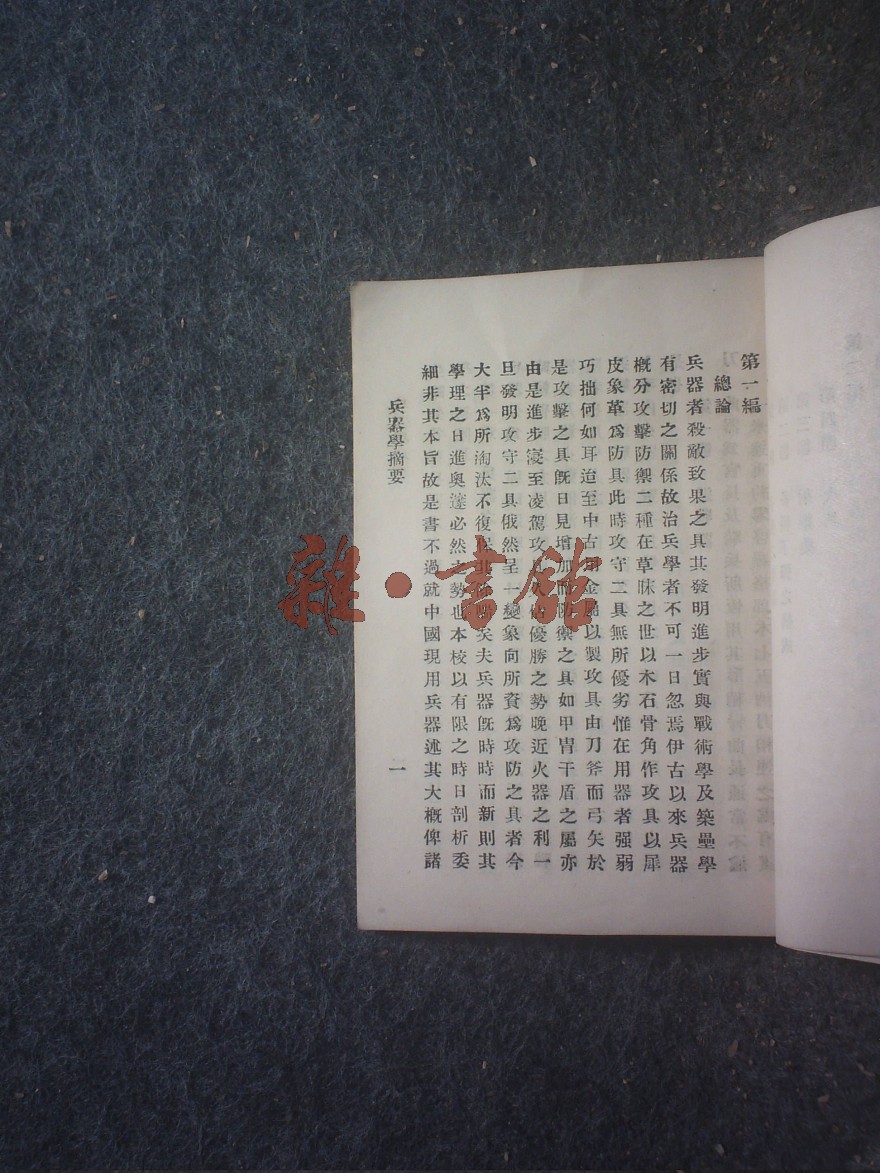 第一編
總論
兵器者殺敵致果之具其發明進步實與戰術學及築壘學
有密切之關係故治兵學者不可一日忽焉伊古以來兵器
概分攻擊防禦二種在草昧之世以木石骨角作攻具以犀
皮象革爲防具此時攻守二具無所優劣惟在用器者强弱
巧拙何如耳迨至中古用金屬以製攻具由刀斧而弓矢於
是攻擊之具旣日見增加而防禦之具如甲胄干盾之屬亦
由是進步寖至凌駕攻具久佔優勝之勢晚近火器之利一
旦發明攻守二具俄然呈一變象向所資爲攻防之具者今
大半爲所淘汰不復保其矣夫兵器旣時時而新則其
學理之日進奥邃必然之勢也本校以有限之時日剖析委
細非其本旨故是書不過就中國現用兵器述其大概俾諸
兵器學摘要
一
雜·書館